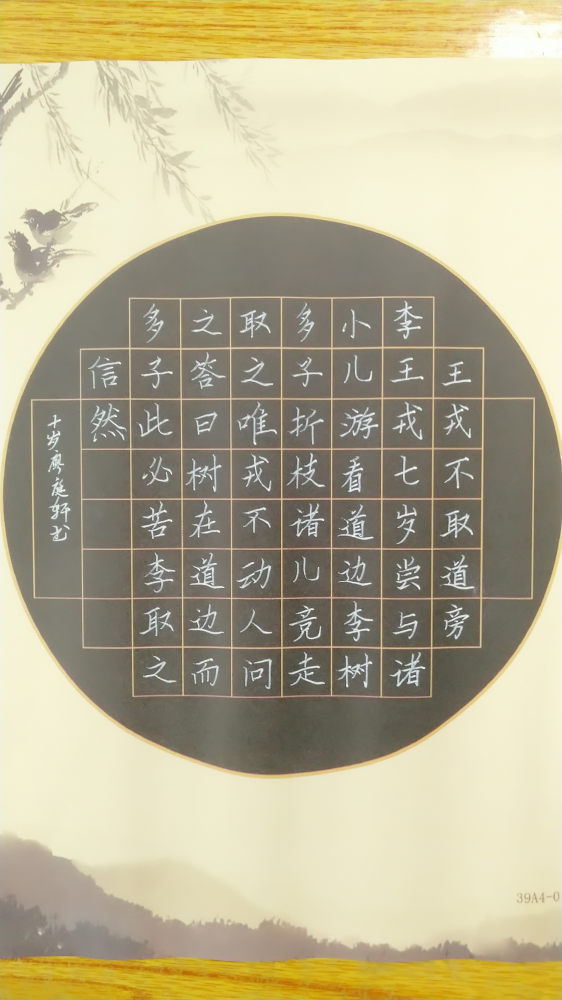 王戎不取道旁
李王戎七岁尝与诸
小儿游看道边李树
多子折枝诸儿竞走
取之唯戎不动人问
之答曰树在道边而
多子此必苦李取之
信然
十岁廖庭轩书
39A4-0